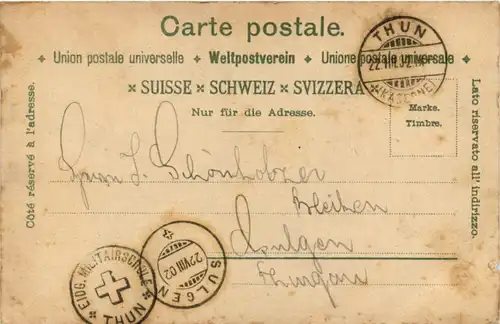 Carte postale.
Union postale universelle + Weltpostverein + Unione postale universale
× SUISSE × SCHWEIZ × SVIZZERA ×
Nur für die Adresse.
Côté réservé à l'adresse.
Marke.
Timbre.
Lato riservato all' indirizzo.
THUN
22.VIII.02
(KASERNE)
J. Schönholzer
Sulgen
Thurgau
SULGEN
22 VIII 02
EIDG. MILITAIRSCHULE
THUN